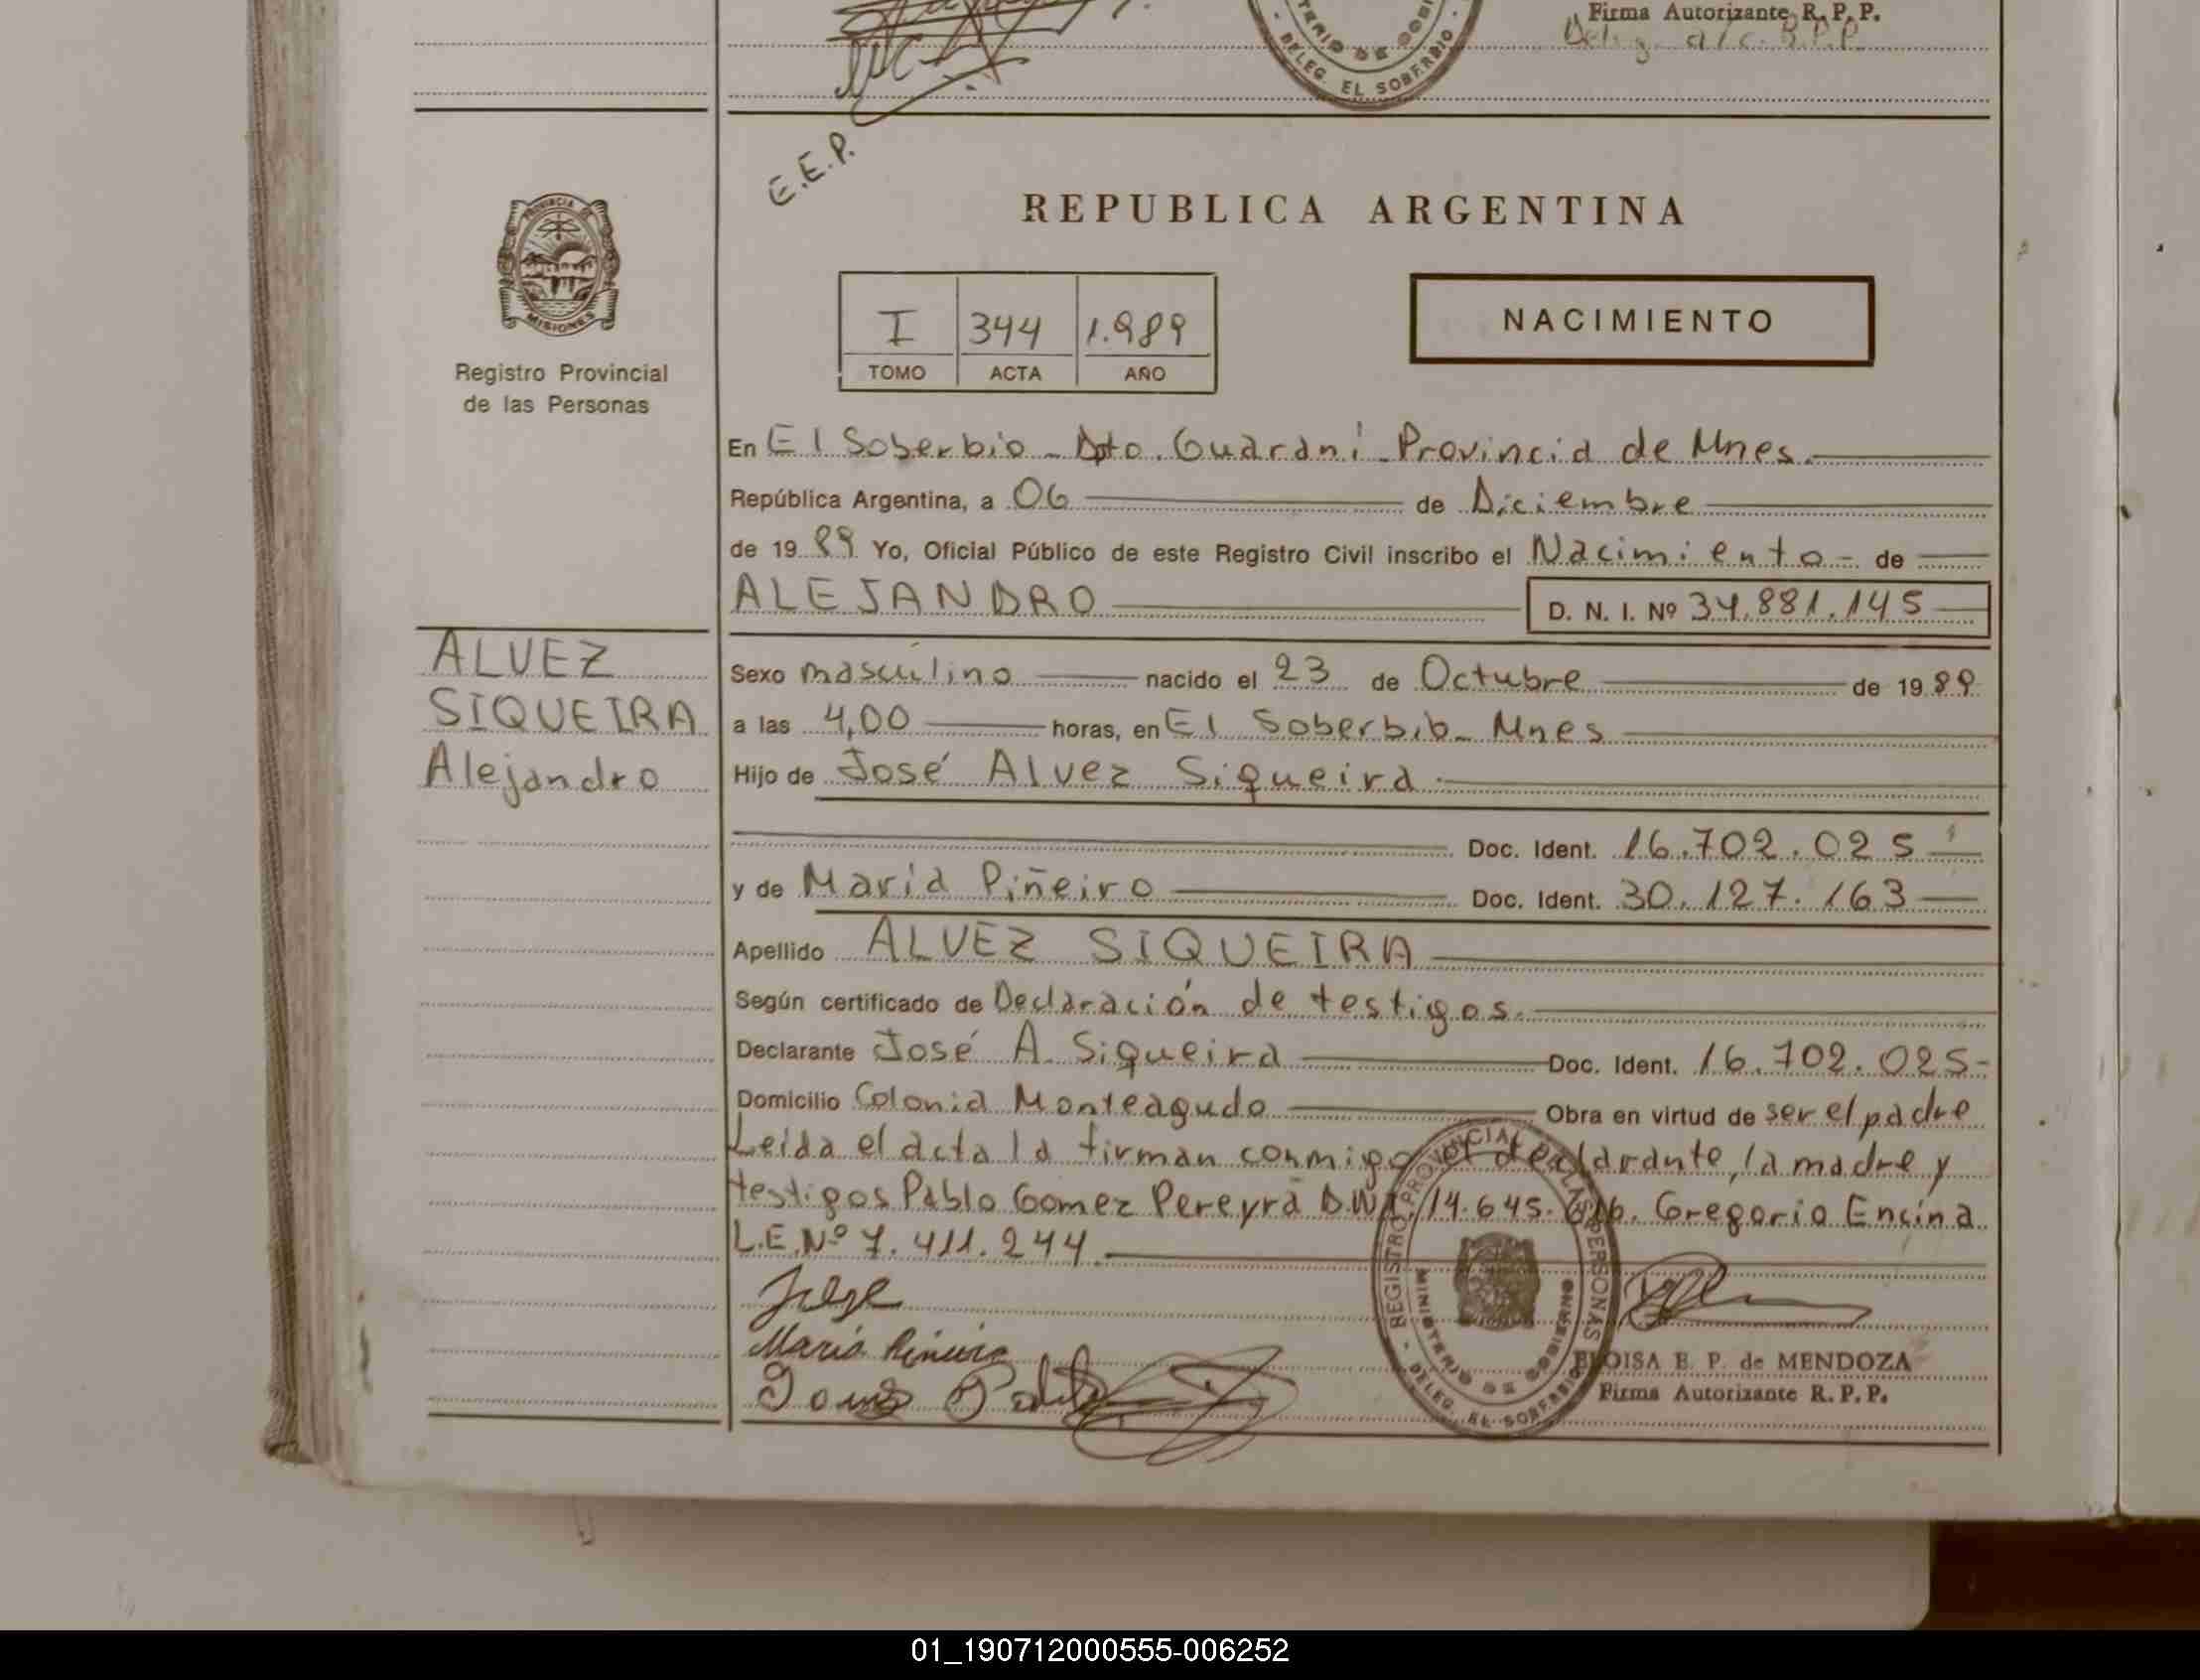 Firma Autorizante R. P. P.
Deleg. a/c. R.P.P
DELEG. EL SOBERBIO
E.E.P.
REPUBLICA ARGENTINA
PROVINCIA DE
MISIONES
Registro Provincial
de las Personas
I 344 1.989
TOMO ACTA AÑO
NACIMIENTO
En El Soberbio - Dpto. Guaraní - Provincia de Mnes.
República Argentina, a 06 de Diciembre
de 1989 Yo, Oficial Público de este Registro Civil inscribo el Nacimiento - de
ALEJANDRO
D. N. I. Nº 34.881.145
ALVEZ
SIQUEIRA
Alejandro
Sexo masculino nacido el 23 de Octubre de 1989
a las 4,00 horas, en El Soberbio - Mnes
Hijo de José Alvez Siqueira
Doc. Ident. 16.702.025
y de María Piñeiro Doc. Ident. 30.127.163
Apellido ALVEZ SIQUEIRA
Según certificado de Declaración de testigos.
Declarante José A. Siqueira Doc. Ident. 16.702.025-
Domicilio Colonia Monteagudo Obra en virtud de ser el padre
Leída el acta la firman conmigo el declarante, la madre y
testigos Pablo Gomez Pereyra D.N.I. 14.645. Gregorio Encina
L.E.Nº 7.411.244.
REGISTRO PROVINCIAL DE LAS PERSONAS
MINISTERIO DE GOBIERNO
DELEG. EL SOBERBIO
Jose
María Piñeiro
ELOISA E. P. de MENDOZA
Firma Autorizante R. P. P.
01_190712000555-006252